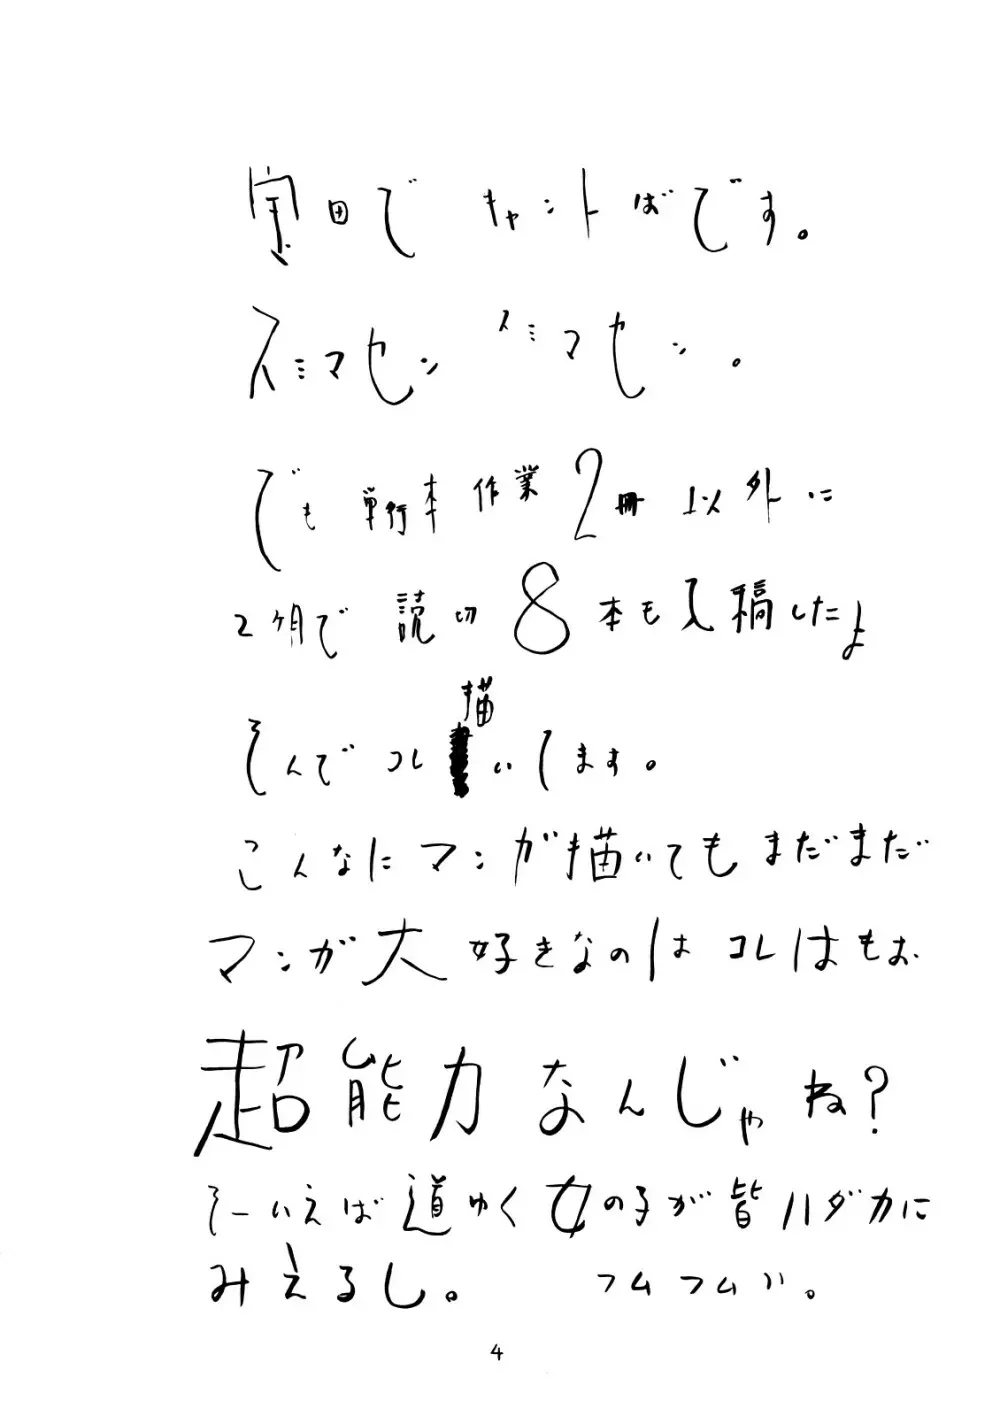 室田で キャントばです。
スミマセン スミマセン。
でも単行本作業2冊以外に
2ヶ月で 読切8本も入稿したよ
そんでコレ描いてます。
こんなにマンガ描いてもまだまだ
マンガ大好きなのはコレはもお
超能力なんじゃね?
そーいえば道ゆく女の子が皆ハダカに
みえるし。 フムフム〃。
4